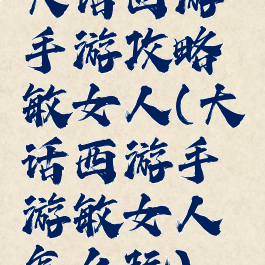 大话西游
手游攻略
敏女人(大
话西游手
游敏女人
怎么玩)